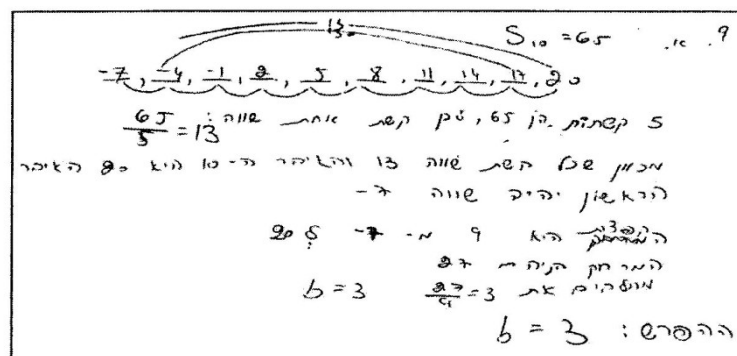 9. א. S₁₀ = 65
13
-7, -4, -1, 2, 5, 8, 11, 14, 17, 20
5 קשתות הן 65, לכן קשת אחת שווה: 65/5 = 13
מכיוון שכל קשת שווה 13 והאיבר ה-10 הוא 20 האיבר
הראשון יהיה שווה -7
היא 9 מ- -7 ל 20
המרחק ביניהם 27
את 27/9 = 3 b = 3
ההפרש: b = 3